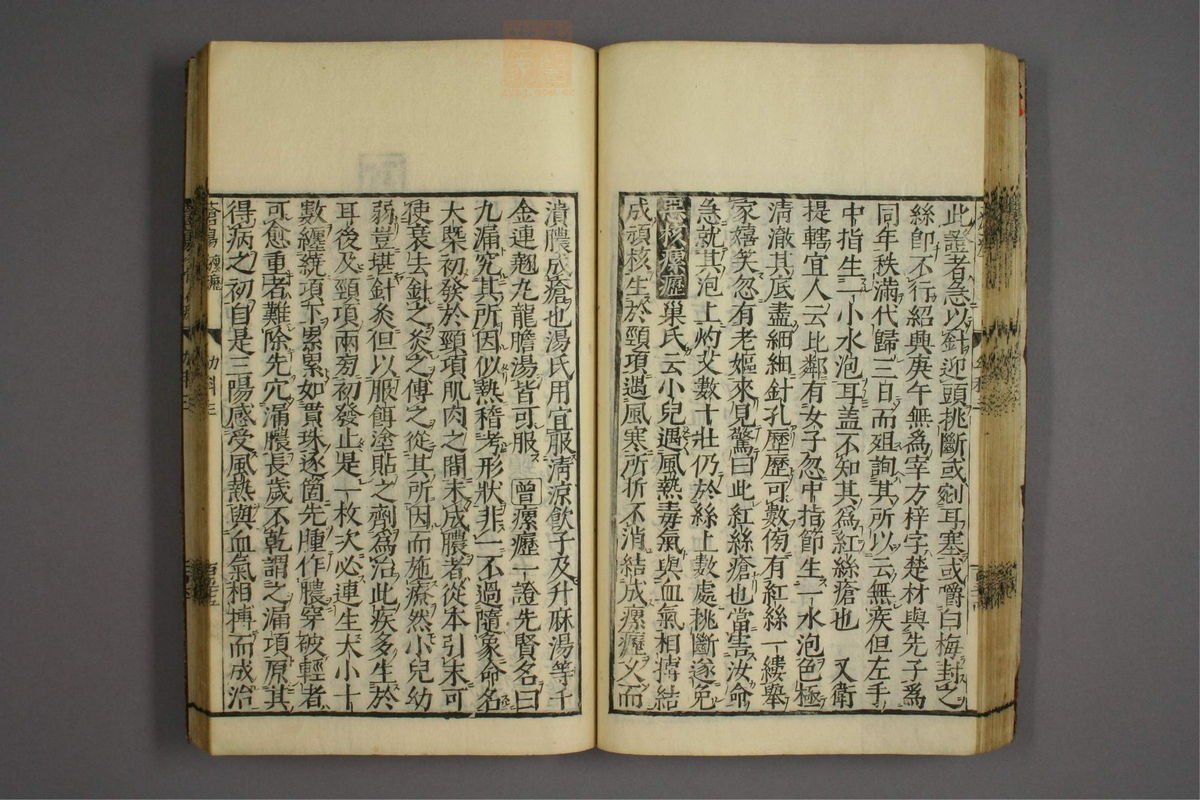 此證者急以針迎頭挑斷或剜耳塞或嚼白梅封之
絲卽不行紹興庚午無爲宰方梓字楚材與先子爲
同年秩滿代歸三日而殂詢其所以云無疾但左手
中指生一小水泡耳盖不知其爲紅絲瘡也 又衛
提轄宜人云比鄰有女子忽中指節生一水泡色極
清澈其底盡細細針孔歷歷可數傍有紅絲一縷舉
家嬉笑忽有老嫗來見驚曰此紅絲瘡也當害汝命
急就其泡上灼艾數十壯仍於絲上數處挑斷遂免
惡核瘰癧 巢氏云小兒遇風熱毒氣與血氣相搏結
成頑核生於頸項遇風寒所折不消結成瘰癧又而
潰膿成瘡也湯氏用宜服淸凉飲子及升麻湯等千
金連翹九龍膽湯皆可服 曾 瘰癧一證先賢名曰
九漏究其所因似熱稽考形狀非一不過隨象命名
大槩初發於頸項肌肉之間未成膿者從本引末可
使衰去針之灸之傅之從其所因而施療然小兒幼
弱豈堪針灸但以服餌塗貼之劑爲治此疾多生於
耳後及頸項兩旁初發止是一枚次必連生大小十
數纒繞項下累累如貫珠逐箇先腫作膿穿破輕者
可愈重者難除先穴漏膿長歲不乾謂之漏項原其
得病之初自是三陽感受風熱與血氣相搏而成治
幼科三